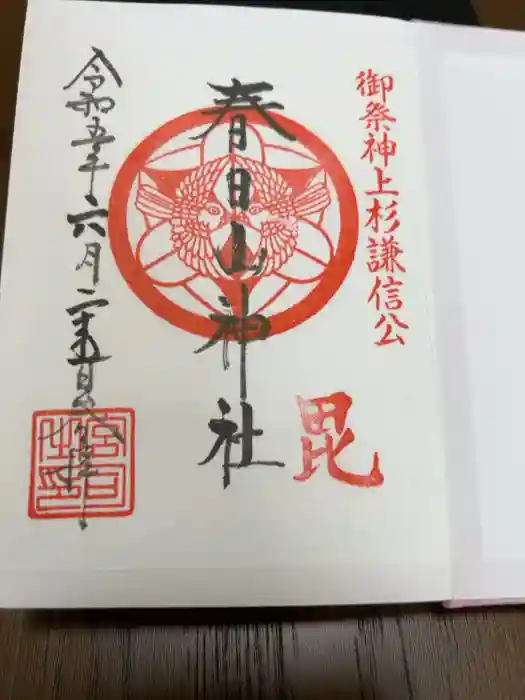 御祭神上杉謙信公
毘
春日山神社
令和五年六月二十五日